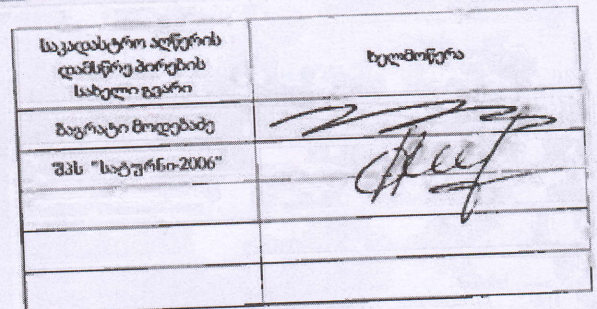 საკადასტრო აღწერის
დამსწრე პირების
სახელი გვარი
ხელმოწერა
ბაგრატი მოდებაძე
შპს "სატურნი-2006"